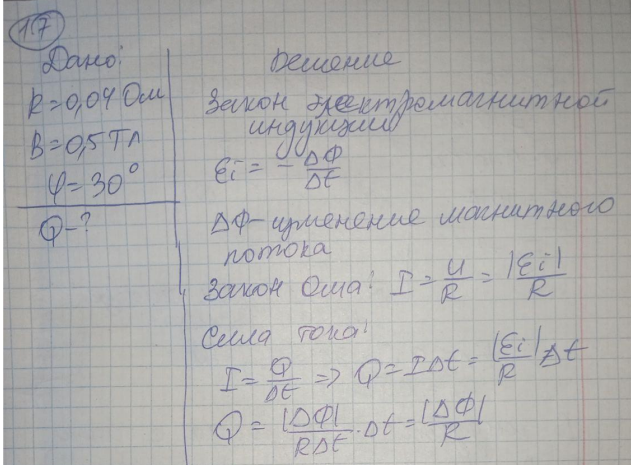 17
Дано:
R = 0,04 Ом
B = 0,5 Тл
φ = 30°
Q - ?
Решение
Закон электромагнитной
индукции
εi = - ΔΦ/Δt
ΔΦ - изменение магнитного
потока
Закон Ома: I = U/R = |εi|/R
Сила тока:
I = Q/Δt => Q = IΔt = |εi|/R Δt
Q = |ΔΦ|/RΔt · Δt = |ΔΦ|/R